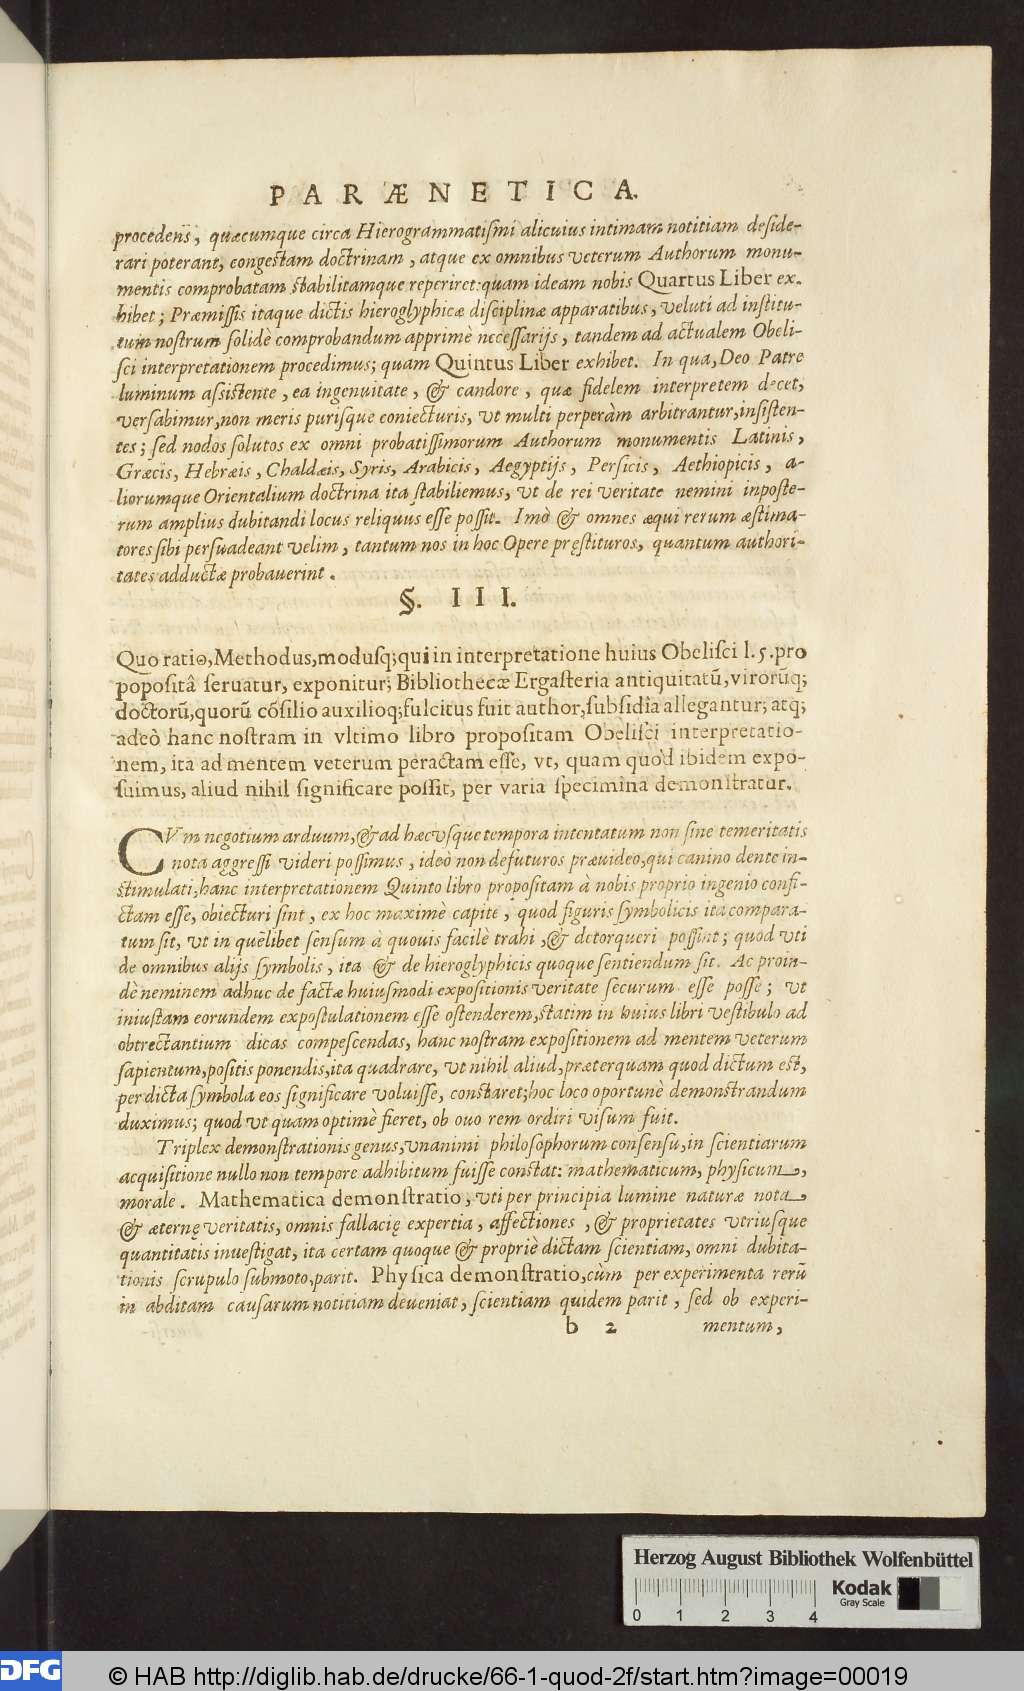 PARÆNETICA.
procedens, quæcumque circa Hierogrammatiſmi alicuius intimam notitiam deſide-
rari poterant, congeſtam doctrinam, atque ex omnibus veterum Authorum monu-
mentis comprobatam ſtabilitamque reperiret: quam ideam nobis Quartus Liber ex-
hibet; Præmiſſis itaque dictis hieroglyphicæ diſciplinæ apparatibus, veluti ad inſtitu-
tum noſtrum ſolidè comprobandum apprimè neceſſarijs, tandem ad actualem Obeli-
ſci interpretationem procedimus; quam Quintus Liber exhibet. In qua, Deo Patre
luminum aſsiſtente, ea ingenuitate, & candore, quæ fidelem interpretem decet,
verſabimur, non meris puriſque coniecturis, vt multi perperàm arbitrantur, inſiſten-
tes; ſed nodos ſolutos ex omni probatiſſimorum Authorum monumentis Latinis,
Græcis, Hebræis, Chaldæis, Syris, Arabicis, Aegyptijs, Perſicis, Aethiopicis, a-
liorumque Orientalium doctrina ita ſtabiliemus, vt de rei veritate nemini inpoſte-
rum amplius dubitandi locus reliquus eſſe poſſit. Imò & omnes æqui rerum æſtima-
tores ſibi perſuadeant velim, tantum nos in hoc Opere pręſtituros, quantum authori-
tates adductæ probauerint.
§. III.
Quo ratio, Methodus, modusq; qui in interpretatione huius Obeliſci l. 5. pro
popoſitâ ſeruatur, exponitur; Bibliothecæ Ergaſteria antiquitatũ, virorũq;
doctorũ, quorũ cõſilio auxilioq; fulcitus fuit author, ſubſidia allegantur; atq;
adeò hanc noſtram in vltimo libro propoſitam Obeliſci interpretatio-
nem, ita ad mentem veterum peractam eſſe, vt, quam quod ibidem expo-
ſuimus, aliud nihil ſignificare poſſit, per varia ſpecimina demonſtratur.
CVm negotium arduum, & ad hæcvſque tempora intentatum non ſine temeritatis
nota aggreſſi videri poſſimus, ideò non defuturos præuideo, qui canino dente in-
ſtimulati, hanc interpretationem Quinto libro propoſitam à nobis proprio ingenio confi-
ctam eſſe, obiecturi ſint, ex hoc maximè capite, quod figuris ſymbolicis ita compara-
tum ſit, vt in quẽlibet ſenſum à quouis facilè trahi, & detorqueri poſſint; quod vti
de omnibus alijs ſymbolis, ita & de hieroglyphicis quoque ſentiendum ſit. Ac proin-
dè neminem adhuc de factæ huiuſmodi expoſitionis veritate ſecurum eſſe poſſe; vt
iniuſtam eorundem expoſtulationem eſſe oſtenderem, ſtatim in huius libri veſtibulo ad
obtrectantium dicas compeſcendas, hanc noſtram expoſitionem ad mentem veterum
ſapientum, poſitis ponendis, ita quadrare, vt nihil aliud, præterquam quod dictum eſt,
per dicta ſymbola eos ſignificare voluiſſe, conſtaret; hoc loco oportunè demonſtrandum
duximus; quod vt quam optimè fieret, ab ouo rem ordiri viſum fuit.
Triplex demonſtrationis genus, vnanimi philoſophorum conſenſu, in ſcientiarum
acquiſitione nullo non tempore adhibitum fuiſſe conſtat: mathematicum, phyſicum,
morale. Mathematica demonſtratio, vti per principia lumine naturæ nota,
& æternę veritatis, omnis fallacię expertia, affectiones, & proprietates vtriuſque
quantitatis inueſtigat, ita certam quoque & propriè dictam ſcientiam, omni dubita-
tionis ſcrupulo ſubmoto, parit. Phyſica demonſtratio, cùm per experimenta rerũ
in abditam cauſarum notitiam deueniat, ſcientiam quidem parit, ſed ob experi-
b 2 mentum,
Herzog August Bibliothek Wolfenbüttel
Kodak
Gray Scale
0 1 2 3 4
DFG © HAB http://diglib.hab.de/drucke/66-1-quod-2f/start.htm?image=00019